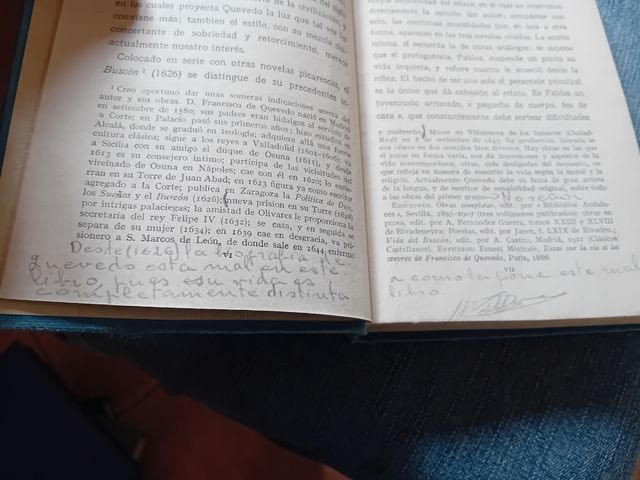 en los cuales proyecta Quevedo la luz que tal vez les
conviene más; tambien el estilo, con su mezcla des-
concertante de sobriedad y retorcimiento, merece
actualmente nuestro interés.
Colocado en serie con otras novelas picarescas, el
Buscón ¹ (1626) se distingue de su precedentes in-
¹ Creo oportuno dar unas someras indicaciones acerca del
autor y sus obras. D. Francisco de Quevedo nació en Madrid
en setiembre de 1580; sus padres eran hidalgos al servicio de
la Corte; en Palacio pasó sus primeros años; hizo estudios en
Alcalá, donde se graduó en teología; adquiere allá una fuerte
cultura clásica; sigue a los reyes a Valladolid (1601-1606); va
a Sicilia con su amigo el duque de Osuna (1611), y desde
1613 es su consejero íntimo; participa de las vicisitudes del
virreinado de Osuna en Nápoles; cae con él en 1620; lo encie-
rran en su Torre de Juan Abad; en 1623 figura ya como escritor
agregado a la Corte; publica en Zaragoza la Política de Dios,
los Sueños y el Buscón (1626); nueva prision en su Torre (1628)
por intrigas palaciegas; la amistad de Olivares le proporciona la
secretaría del rey Felipe IV (1632); se casa, y en seguida se
separa de su mujer (1634); en 1639 cae en desgracia, va pri-
sionero a S. Marcos de León, de donde sale en 1644, enfermo
VI
Desde (1626) la biografia de
quevedo esta mal en este
libro, pues su vida es
completamente distinta
mayor objetividad del relato, en el cual no interviene
directamente la opinión del autor; compárense con
esto, las continuas moralidades que, en una u otra
forma, aparecen en las tres novelas citadas. La acción
misma, si recuerda la de obras análogas; se supone
que el protagonista, Pablos, suspende un punto su
vida inquieta, y refiere cuanto le acaeció desde la
niñez. El hecho de ser uno solo el personaje principal
es lo único que dá cohesión al relato. Es Pablos un
jovenzuelo arriscado, « pequeño de cuerpo, feo de
cara », que constantemente debe sortear dificultades
y maltrecho. Muere en Villanueva de los Infantes (Ciudad-
Real) en 8 de setiembre de 1645. Su producción literaria se
nos ofrece en dos sentidos bien diversos. Hay obras en las que
el autor en forma varia, nos dá impresiones y aspectos de la
vida contemporánea; otras, más desligadas del momento, en
que refleja su manera de concebir la vida según la moral y la
religión. Actualmente Quevedo debe su fama de gran artista
de la lengua, y de escritor de sensibilidad original, sobre todo
a las obras del primer grupo.
EDICIONES. Obras completas, edit. por « Bibliófilos Andalu-
ces », Sevilla, 1897-1907 (tres volúmenes publicados); obras en
prosa, edit. por A. Fernández Guerra, tomos XXIII y XLVIII
de Rivadeneyra; Poesías, edit. por Janer, t. LXIX de Rivaden.;
Vida del Buscón, edit. por A. Castro, Madrid, 1911 (Clásicos
Castellanos). ESTUDIOS: Ernest Mérimée, Essai sur la vie et les
œuvres de Francisco de Quevedo, París, 1886.
VII
a como la pone este mal
libro.